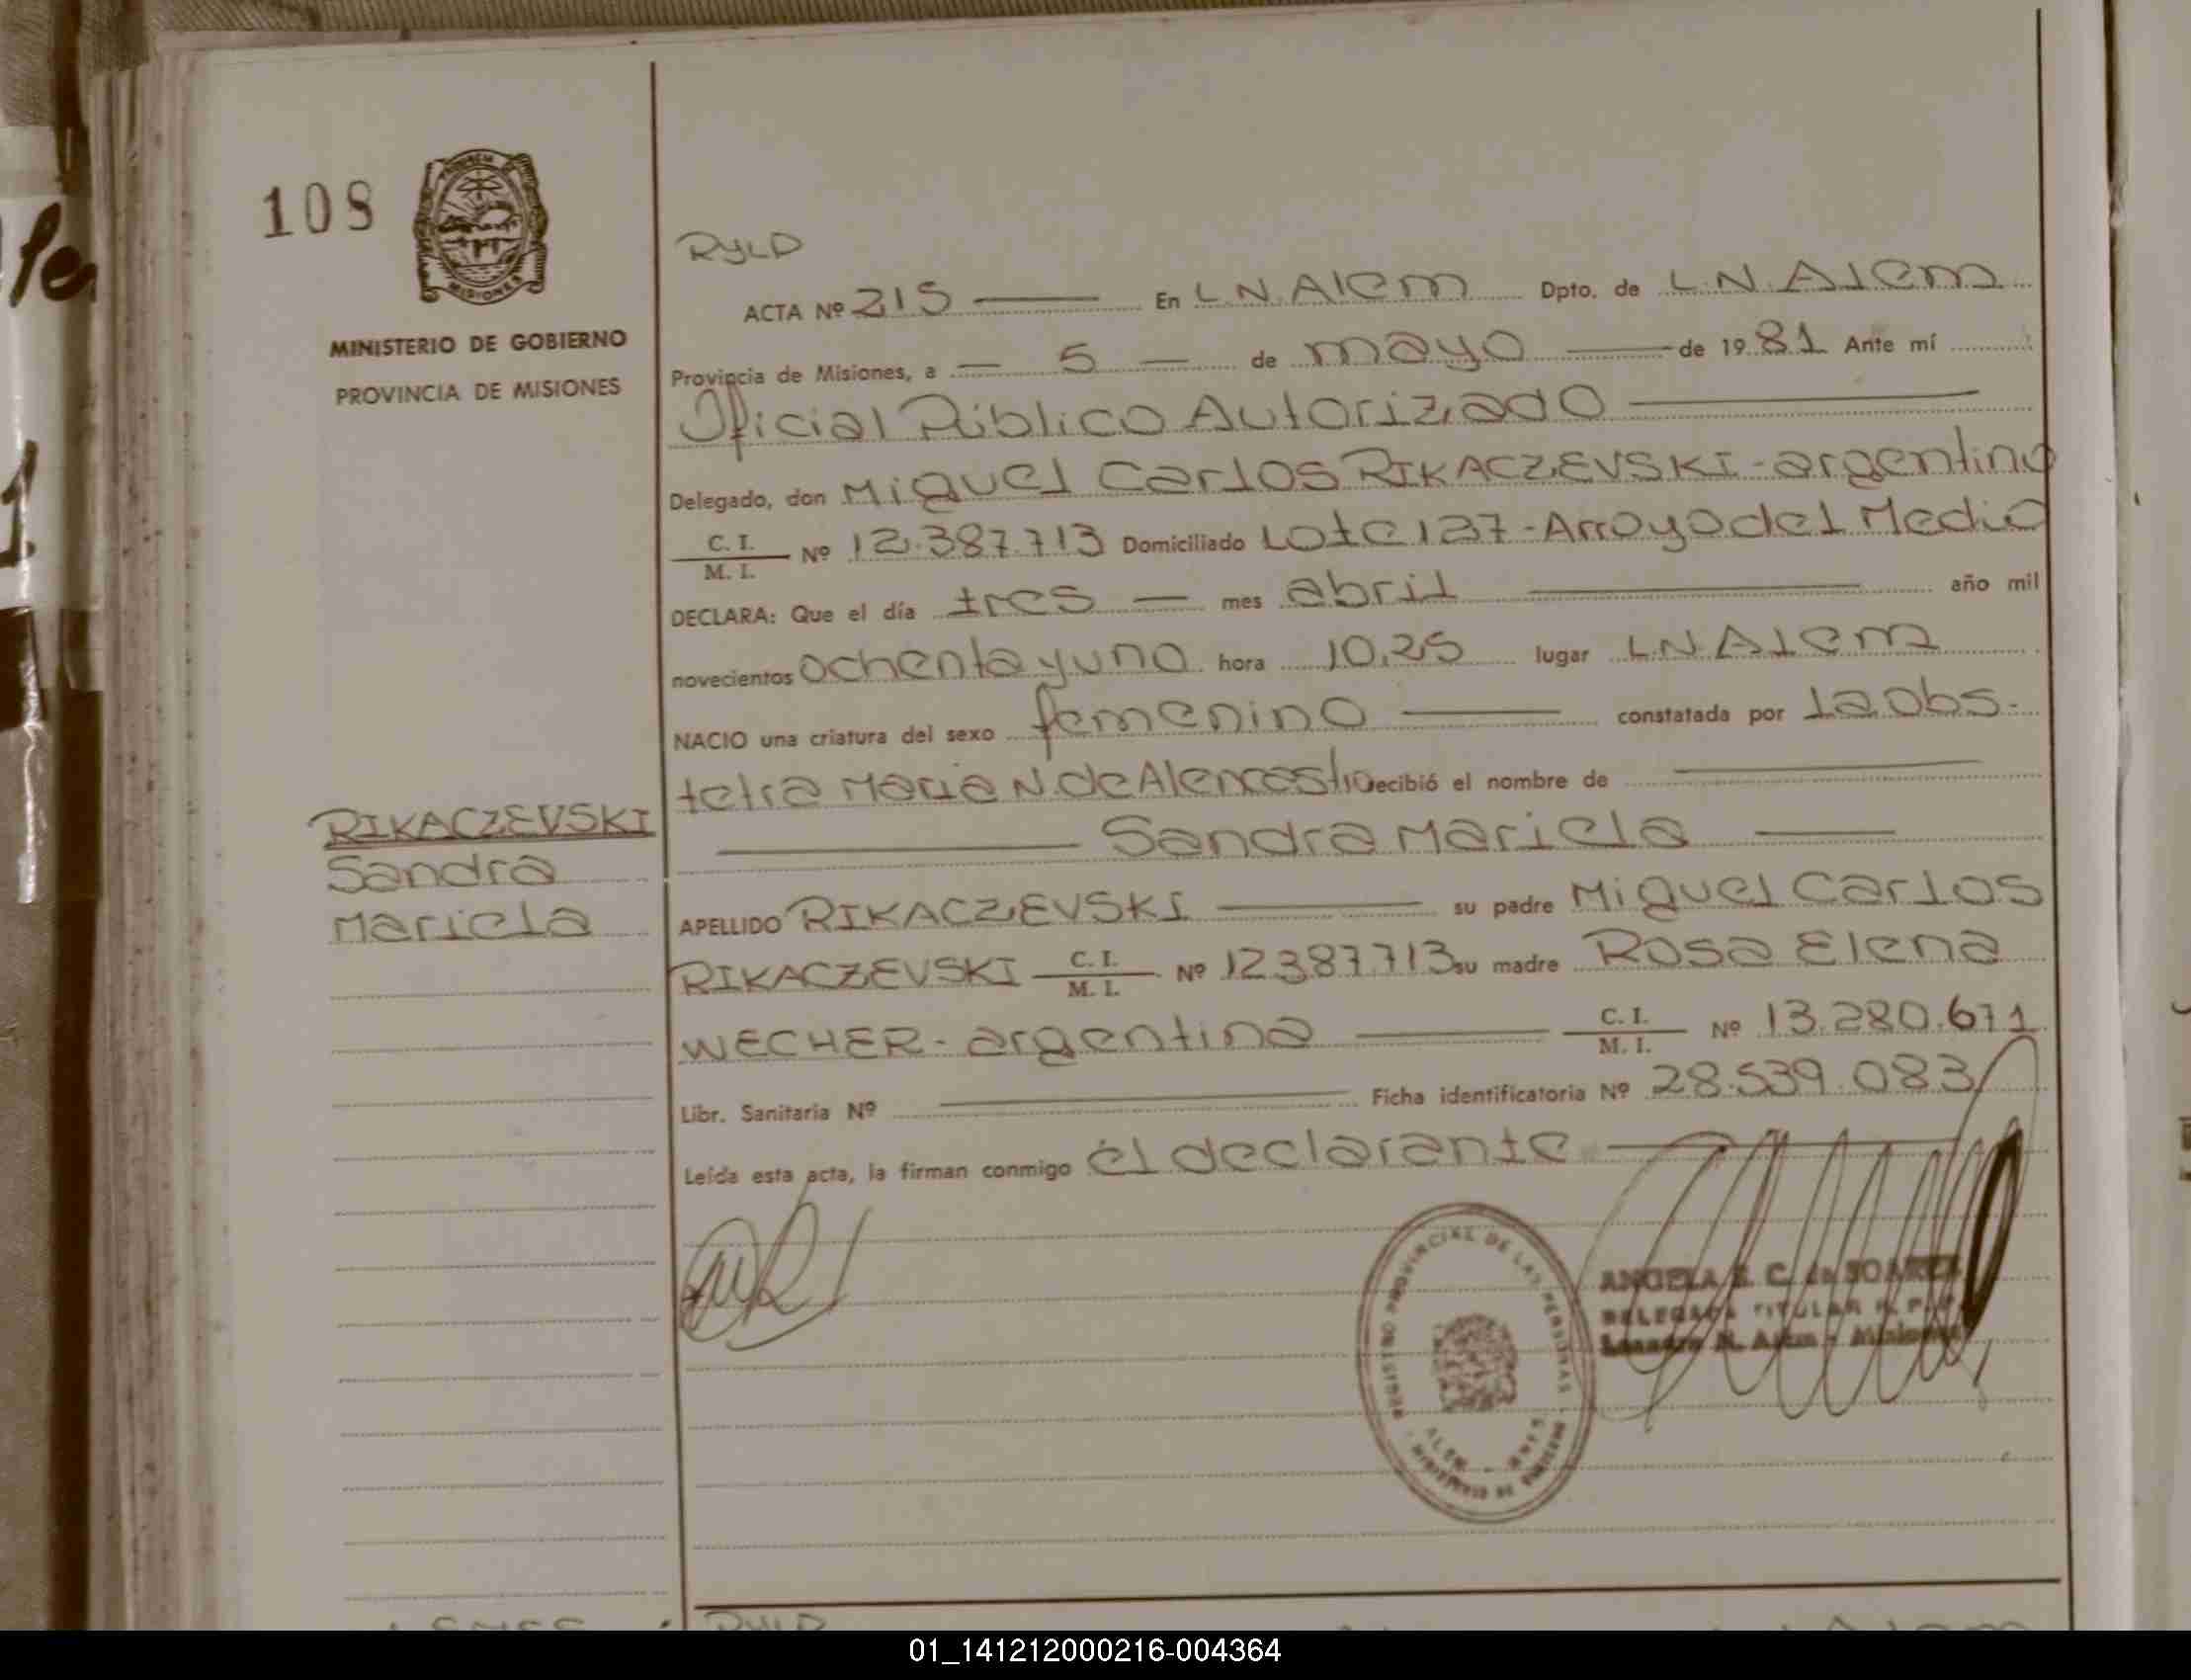 108
PROVINCIA
MISIONES
MINISTERIO DE GOBIERNO
PROVINCIA DE MISIONES
RIKACZEVSKI
Sandra
Mariela
RYLD
ACTA Nº 215 — En L.N. Alem Dpto. de L.N. Alem
Provincia de Misiones, a — 5 — de mayo — de 1981 Ante mí
Oficial Público Autorizado —
Delegado, don Miguel Carlos RIKACZEVSKI - argentino
C. I. / M. I. Nº 12.387.713 Domiciliado Lote 127 - Arroyo del Medio
DECLARA: Que el día tres — mes abril — año mil
novecientos ochenta y uno hora 10,25 lugar L.N. Alem
NACIO una criatura del sexo femenino — constatada por la obs-
tetra Maria N. de Alencastro recibió el nombre de —
— Sandra Mariela —
APELLIDO RIKACZEVSKI — su padre Miguel Carlos
RIKACZEVSKI C. I. / M. I. Nº 12387713 su madre Rosa Elena
WECHER - argentina — C. I. / M. I. Nº 13.280.671
Libr. Sanitaria Nº — Ficha identificatoria Nº 28.539.083
Leída esta acta, la firman conmigo el declarante —
REGISTRO PROVINCIAL DE LAS PERSONAS
ALEM - MNES
MINISTERIO DE GOBIERNO
ANGELA E. C. de SOAREZ
DELEGADA TITULAR R. P. P.
Leandro N. Alem - Misiones
RYLD
01_141212000216-004364